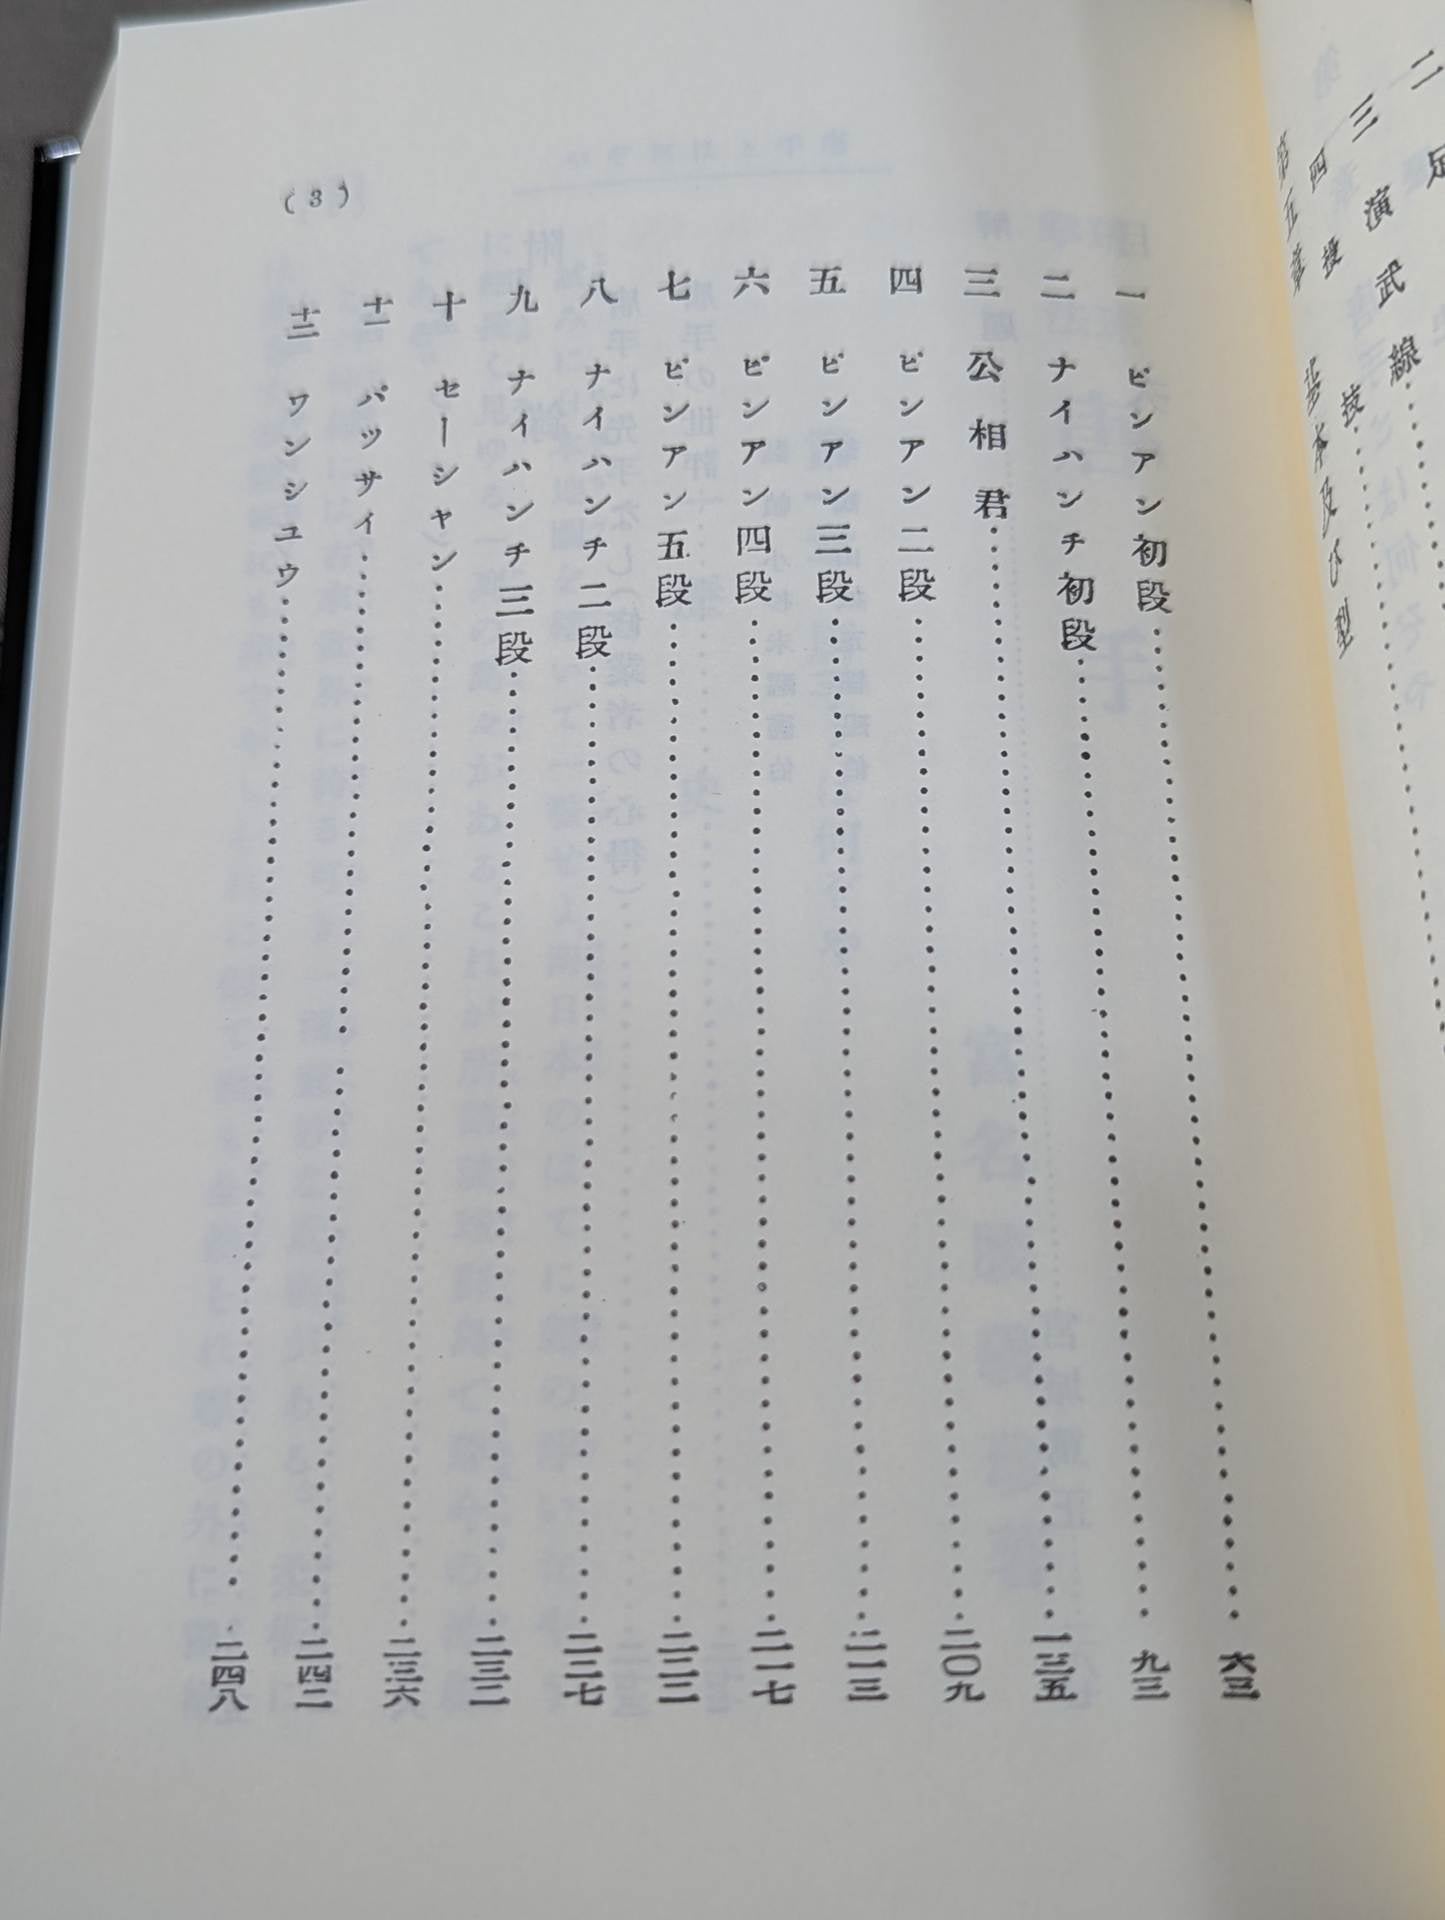 二 足
三 演武線……
四 投技……
第五章 基本及び型
一 ピンアン初段……六三
二 ナイハンチ初段……九三
三 公相君……一三五
四 ピンアン二段……二〇九
五 ピンアン三段……二一三
六 ピンアン四段……二一七
七 ピンアン五段……二二二
八 ナイハンチ二段……二二七
九 ナイハンチ三段……二三二
十 セーシャン……二三六
十一 パッサイ……二四二
十二 ワンシユウ……二四八
(3)